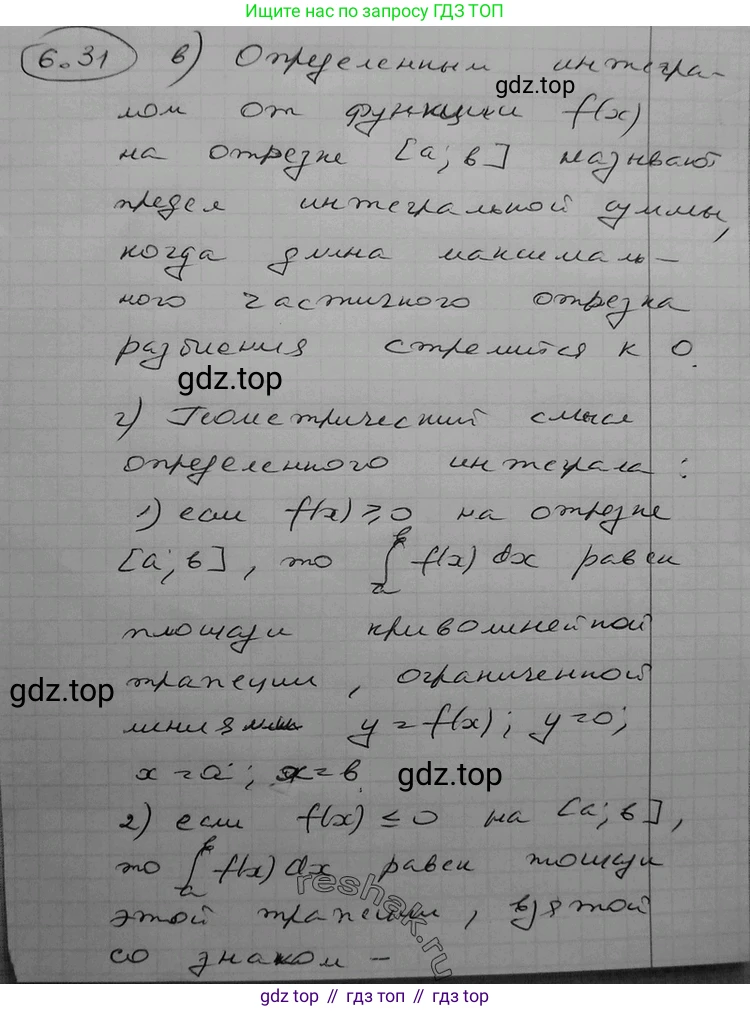 Ищите нас по запросу ГДЗ ТОП
6.31 в) Определенным интегра-
лом от функции f(x)
на отрезке [a; в] называют
предел интегральной суммы,
когда длина максималь-
ного частичного отрезка
разбиения стремится к 0.
г) Геометрический смысл
определенного интеграла:
1) если f(x) ≥ 0 на отрезке
[a; в], то ∫ₐᵇ f(x) dx равен
площади криволинейной
трапеции, ограниченной
линиями y = f(x); y = 0;
x = a; x = в.
2) если f(x) ≤ 0 на [a; в],
то ∫ₐᵇ f(x) dx равен площади
этой трапеции, взятой
со знаком –
gdz.top
gdz.top
gdz.top
gdz.top
reshak.ru
gdz топ // гдз топ // гдз top